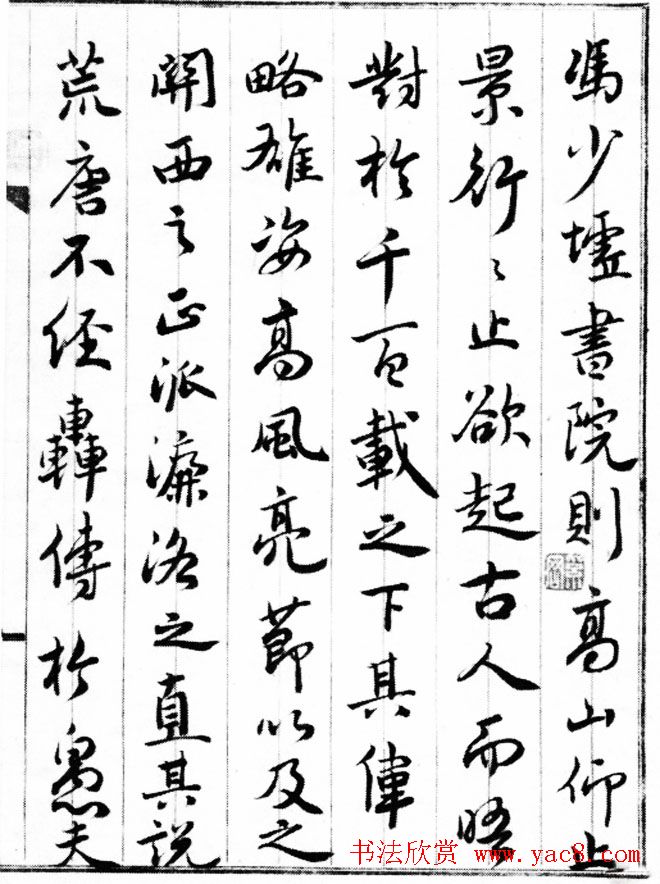 馮少墟書院則高山仰止
景行〻止欲起古人而晤
對於千百載之下其偉
略雄姿高風亮節以及之
關西之正派濂洛之直其説
荒唐不經轟傳於愚夫
书法欣赏 www.yac8.com